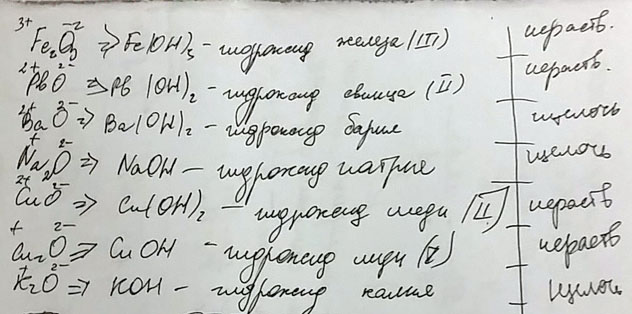 3+ Fe₂O₃ -2 => Fe(OH)₃ - гидроксид железа (III) нераств.
2+ PbO 2- => Pb(OH)₂ - гидроксид свинца (II) нераств.
2+ BaO 2- => Ba(OH)₂ - гидроксид бария щелочь
+ Na₂O 2- => NaOH - гидроксид натрия щелочь
2+ CuO 2- => Cu(OH)₂ - гидроксид меди (II) нераств
+ Cu₂O 2- => CuOH - гидроксид меди (I) нераств
+ K₂O 2- => KOH - гидроксид калия щелочь